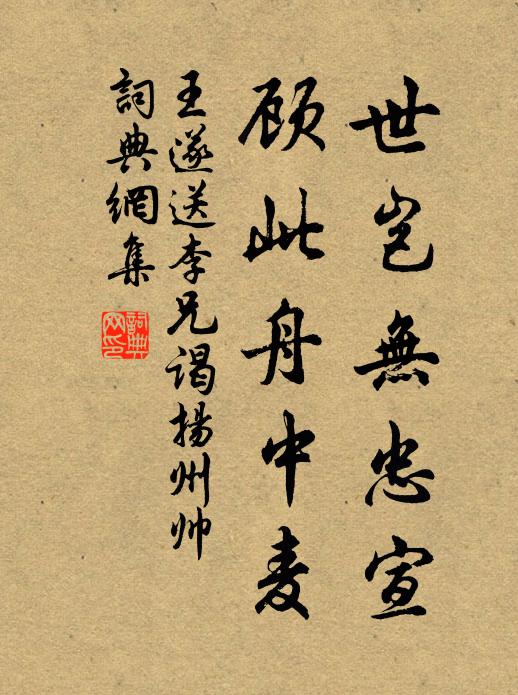 世岂無忠宣
顾此舟中麦
王遂送李兄谒揚州帅
詞典網集
詞典网印